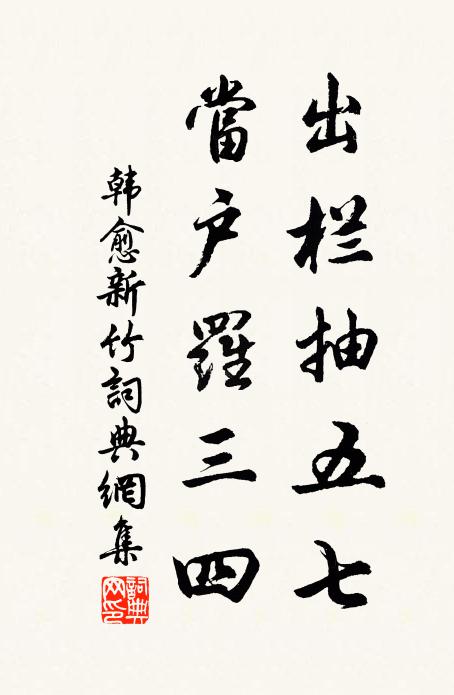 出栏抽五七
當户羅三四
韩愈新竹詞典網集
詞典网印